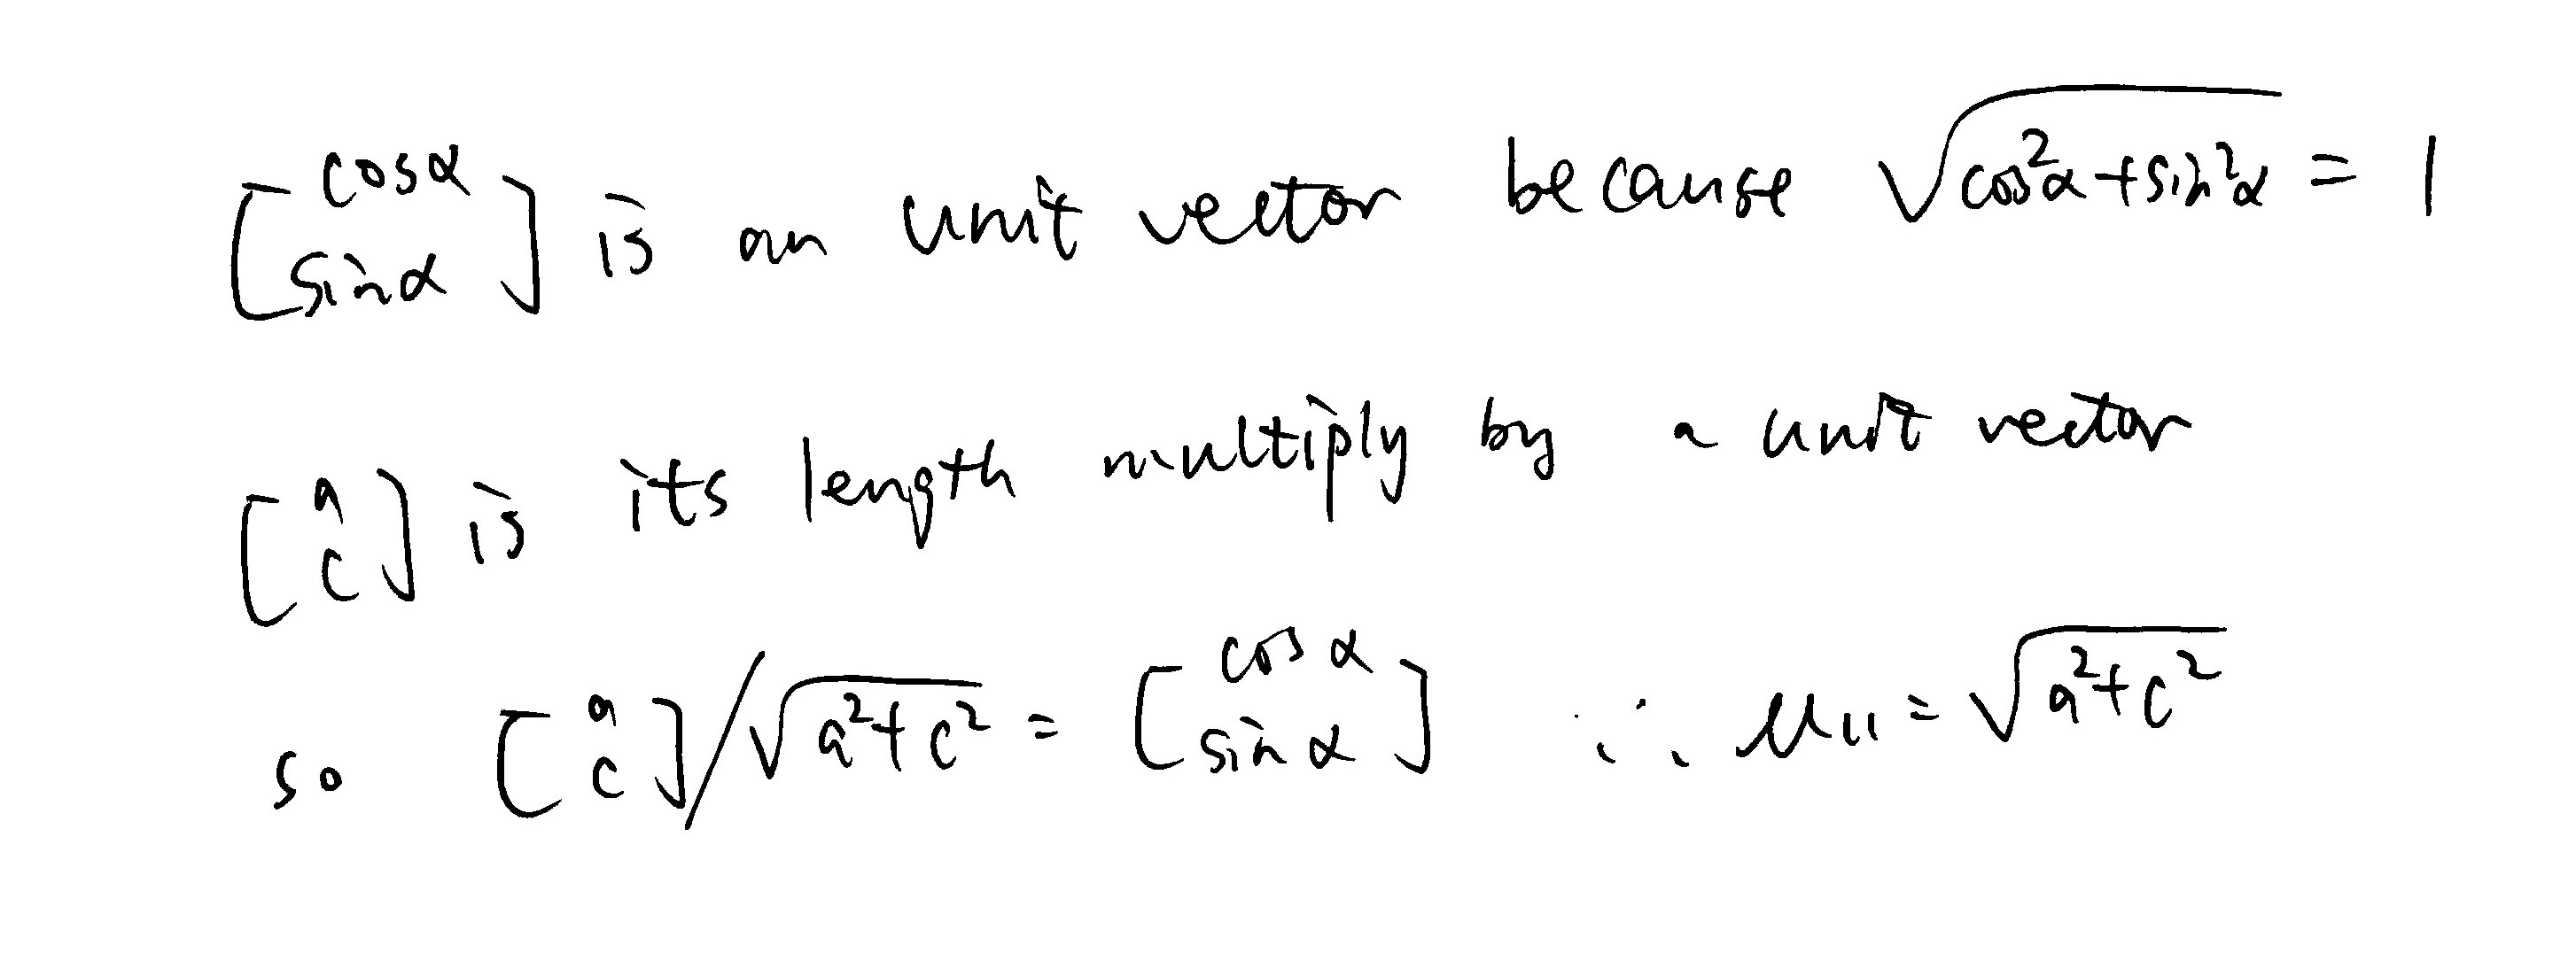 [cosα sinα] is an unit vector because √(cos²α+sin²α) = 1
[a c] is its length multiply by a unit vector
so [a c]/√(a²+c²) = [cos α sin α] ∴ u₁₁ = √(a²+c²)